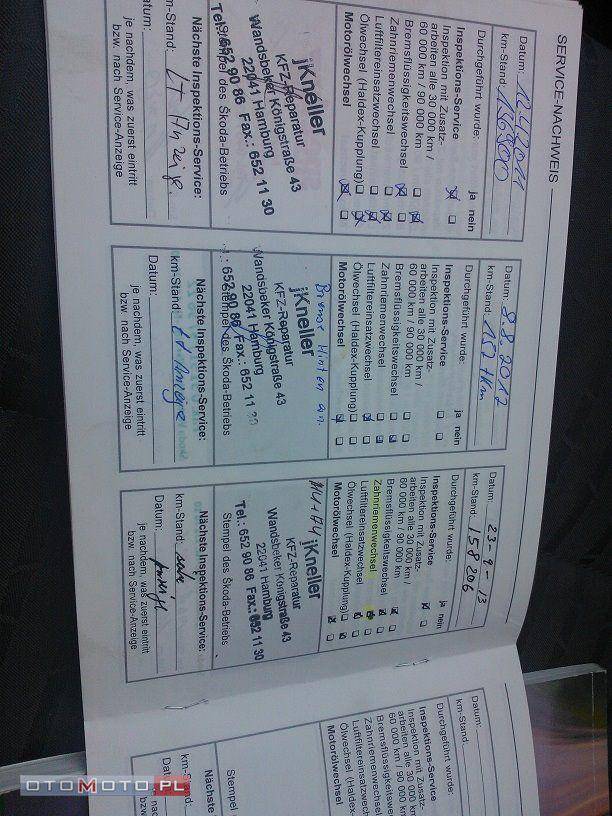 SERVICE-NACHWEIS
Datum: 12.4.2011
km-Stand:
Durchgeführt wurde:
ja nein
Inspektions-Service
Inspektion mit Zusatz-
arbeiten alle 30 000 km /
60 000 km / 90 000 km
Bremsflüssigkeitswechsel
Zahnriemenwechsel
Luftfiltereinsatzwechsel
Ölwechsel (Haldex-Kupplung)
Motorölwechsel
jKneller
KFZ-Reparatur
Wandsbeker Königstraße 43
22041 Hamburg
Tel.: 652 90 86 Fax.: 652 11 30
Stempel des Škoda-Betriebs
Nächste Inspektions-Service:
km-Stand: Lt Anzeige
Datum:
je nachdem, was zuerst eintritt
bzw. nach Service-Anzeige
Datum: 8.8.2012
km-Stand: 150 tkm
Durchgeführt wurde:
ja nein
Inspektions-Service
Inspektion mit Zusatz-
arbeiten alle 30 000 km /
60 000 km / 90 000 km
Bremsflüssigkeitswechsel
Zahnriemenwechsel
Luftfiltereinsatzwechsel
Ölwechsel (Haldex-Kupplung)
Motorölwechsel
Bremse Hinten
jKneller
KFZ-Reparatur
Wandsbeker Königstraße 43
22041 Hamburg
652 90 86 Fax.: 652 11 30
Stempel des Škoda-Betriebs
Nächste Inspektions-Service:
km-Stand: Lt. Anzeige
Datum:
je nachdem, was zuerst eintritt
bzw. nach Service-Anzeige
Datum: 23-9-13
km-Stand: 158206
Durchgeführt wurde:
ja nein
Inspektions-Service
Inspektion mit Zusatz-
arbeiten alle 30 000 km /
60 000 km / 90 000 km
Bremsflüssigkeitswechsel
Zahnriemenwechsel
Luftfiltereinsatzwechsel
Ölwechsel (Haldex-Kupplung)
Motorölwechsel
jKneller
KFZ-Reparatur
Wandsbeker Königstraße 43
22041 Hamburg
Tel.: 652 90 86 Fax.: 652 11 30
Stempel des Škoda-Betriebs
Nächste Inspektions-Service:
km-Stand:
Datum:
je nachdem, was zuerst eintritt
bzw. nach Service-Anzeige
Datum:
km-Stand:
Durchgeführt wurde:
Inspektions-Service
Inspektion mit Zusatz-
arbeiten alle 30 000 km
60 000 km / 90 000 km
Bremsflüssigkeitswechsel
Zahnriemenwechsel
Luftfiltereinsatzwechsel
Ölwechsel (Haldex-
Motorölwechsel
Stempel
Nächste
km-
je nach
bzw. nach
OTOMOTO.PL